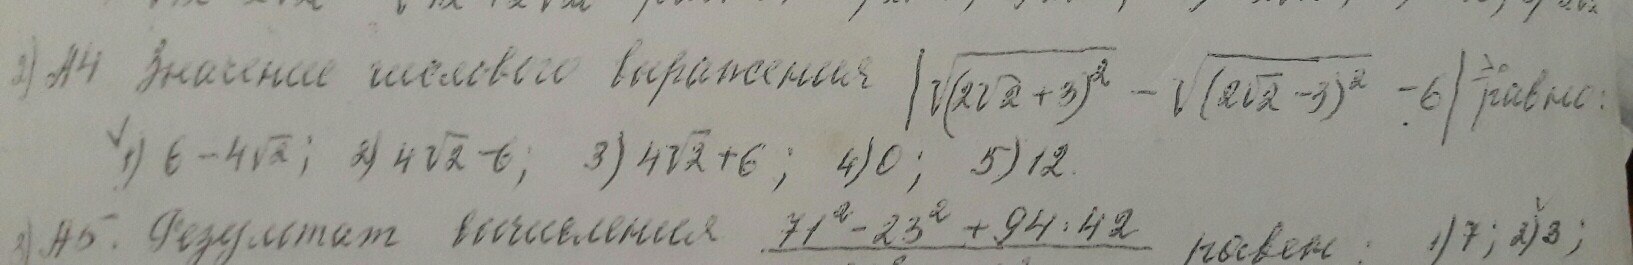 2) А4 Значение числового выражения |√(2√2+3)² - √(2√2-3)² - 6| равно:
1) 6-4√2; 2) 4√2-6; 3) 4√2+6; 4) 0; 5) 12.
3) А5. Результат вычисления 71² - 23² + 94·42 равен: 1) 7; 2) 3;